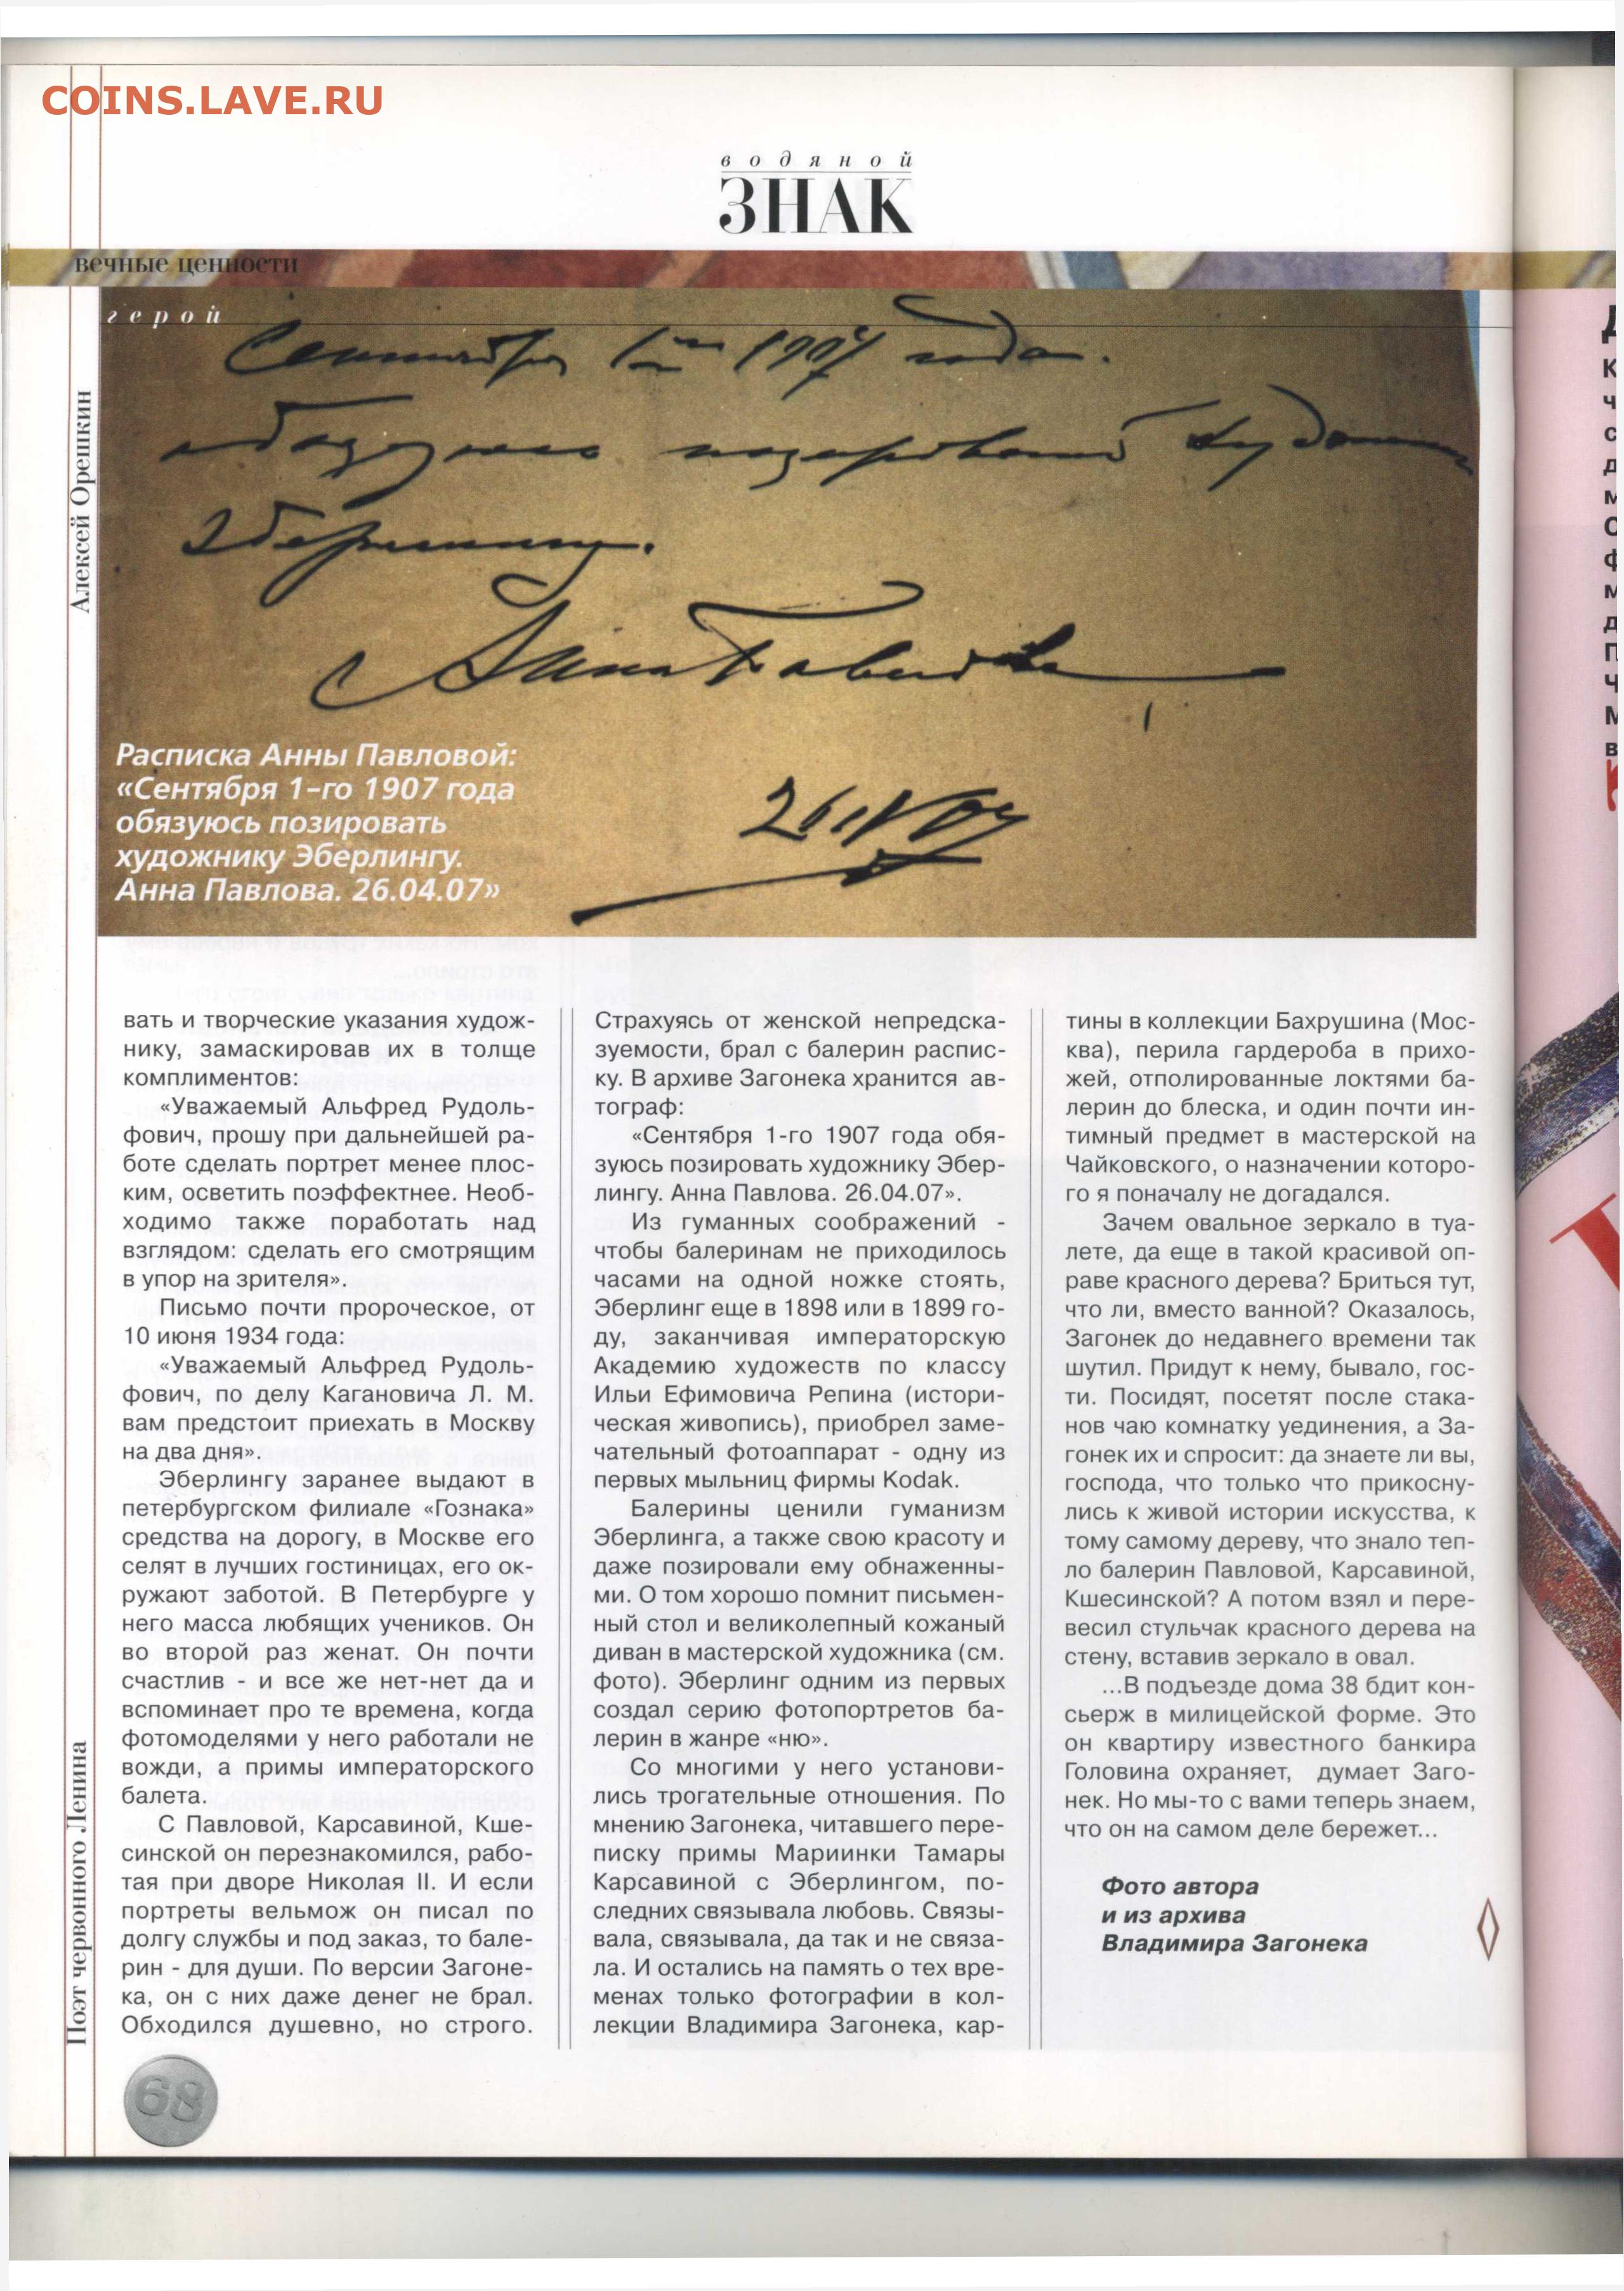 COINS.LAVE.RU
водяной
ЗНАК
вечные ценности
герой
Алексей Орешкин
Поэт червонного Ленина
Сентября 1го 1907 года.
обязуюсь позировать художнику
Эберлингу.
Анна Павлова
26 IV 07
Расписка Анны Павловой:
«Сентября 1-го 1907 года
обязуюсь позировать
художнику Эберлингу.
Анна Павлова. 26.04.07»
вать и творческие указания худож-
нику, замаскировав их в толще
комплиментов:
«Уважаемый Альфред Рудоль-
фович, прошу при дальнейшей ра-
боте сделать портрет менее плос-
ким, осветить поэффектнее. Необ-
ходимо также поработать над
взглядом: сделать его смотрящим
в упор на зрителя».
Письмо почти пророческое, от
10 июня 1934 года:
«Уважаемый Альфред Рудоль-
фович, по делу Кагановича Л. М.
вам предстоит приехать в Москву
на два дня».
Эберлингу заранее выдают в
петербургском филиале «Гознака»
средства на дорогу, в Москве его
селят в лучших гостиницах, его ок-
ружают заботой. В Петербурге у
него масса любящих учеников. Он
во второй раз женат. Он почти
счастлив - и все же нет-нет да и
вспоминает про те времена, когда
фотомоделями у него работали не
вожди, а примы императорского
балета.
С Павловой, Карсавиной, Кше-
синской он перезнакомился, рабо-
тая при дворе Николая II. И если
портреты вельмож он писал по
долгу службы и под заказ, то бале-
рин - для души. По версии Загоне-
ка, он с них даже денег не брал.
Обходился душевно, но строго.
Страхуясь от женской непредска-
зуемости, брал с балерин распис-
ку. В архиве Загонека хранится ав-
тограф:
«Сентября 1-го 1907 года обя-
зуюсь позировать художнику Эбер-
лингу. Анна Павлова. 26.04.07».
Из гуманных соображений -
чтобы балеринам не приходилось
часами на одной ножке стоять,
Эберлинг еще в 1898 или в 1899 го-
ду, заканчивая императорскую
Академию художеств по классу
Ильи Ефимовича Репина (истори-
ческая живопись), приобрел заме-
чательный фотоаппарат - одну из
первых мыльниц фирмы Kodak.
Балерины ценили гуманизм
Эберлинга, а также свою красоту и
даже позировали ему обнаженны-
ми. О том хорошо помнит письмен-
ный стол и великолепный кожаный
диван в мастерской художника (см.
фото). Эберлинг одним из первых
создал серию фотопортретов ба-
лерин в жанре «ню».
Со многими у него установи-
лись трогательные отношения. По
мнению Загонека, читавшего пере-
писку примы Мариинки Тамары
Карсавиной с Эберлингом, по-
следних связывала любовь. Связы-
вала, связывала, да так и не связа-
ла. И остались на память о тех вре-
менах только фотографии в кол-
лекции Владимира Загонека, кар-
тины в коллекции Бахрушина (Мос-
ква), перила гардероба в прихо-
жей, отполированные локтями ба-
лерин до блеска, и один почти ин-
тимный предмет в мастерской на
Чайковского, о назначении которо-
го я поначалу не догадался.
Зачем овальное зеркало в туа-
лете, да еще в такой красивой оп-
раве красного дерева? Бриться тут,
что ли, вместо ванной? Оказалось,
Загонек до недавнего времени так
шутил. Придут к нему, бывало, гос-
ти. Посидят, посетят после стака-
нов чаю комнатку уединения, а За-
гонек их и спросит: да знаете ли вы,
господа, что только что прикосну-
лись к живой истории искусства, к
тому самому дереву, что знало теп-
ло балерин Павловой, Карсавиной,
Кшесинской? А потом взял и пере-
весил стульчак красного дерева на
стену, вставив зеркало в овал.
...В подъезде дома 38 бдит кон-
сьерж в милицейской форме. Это
он квартиру известного банкира
Головина охраняет, думает Заго-
нек. Но мы-то с вами теперь знаем,
что он на самом деле бережет...
Фото автора
и из архива
Владимира Загонека
68